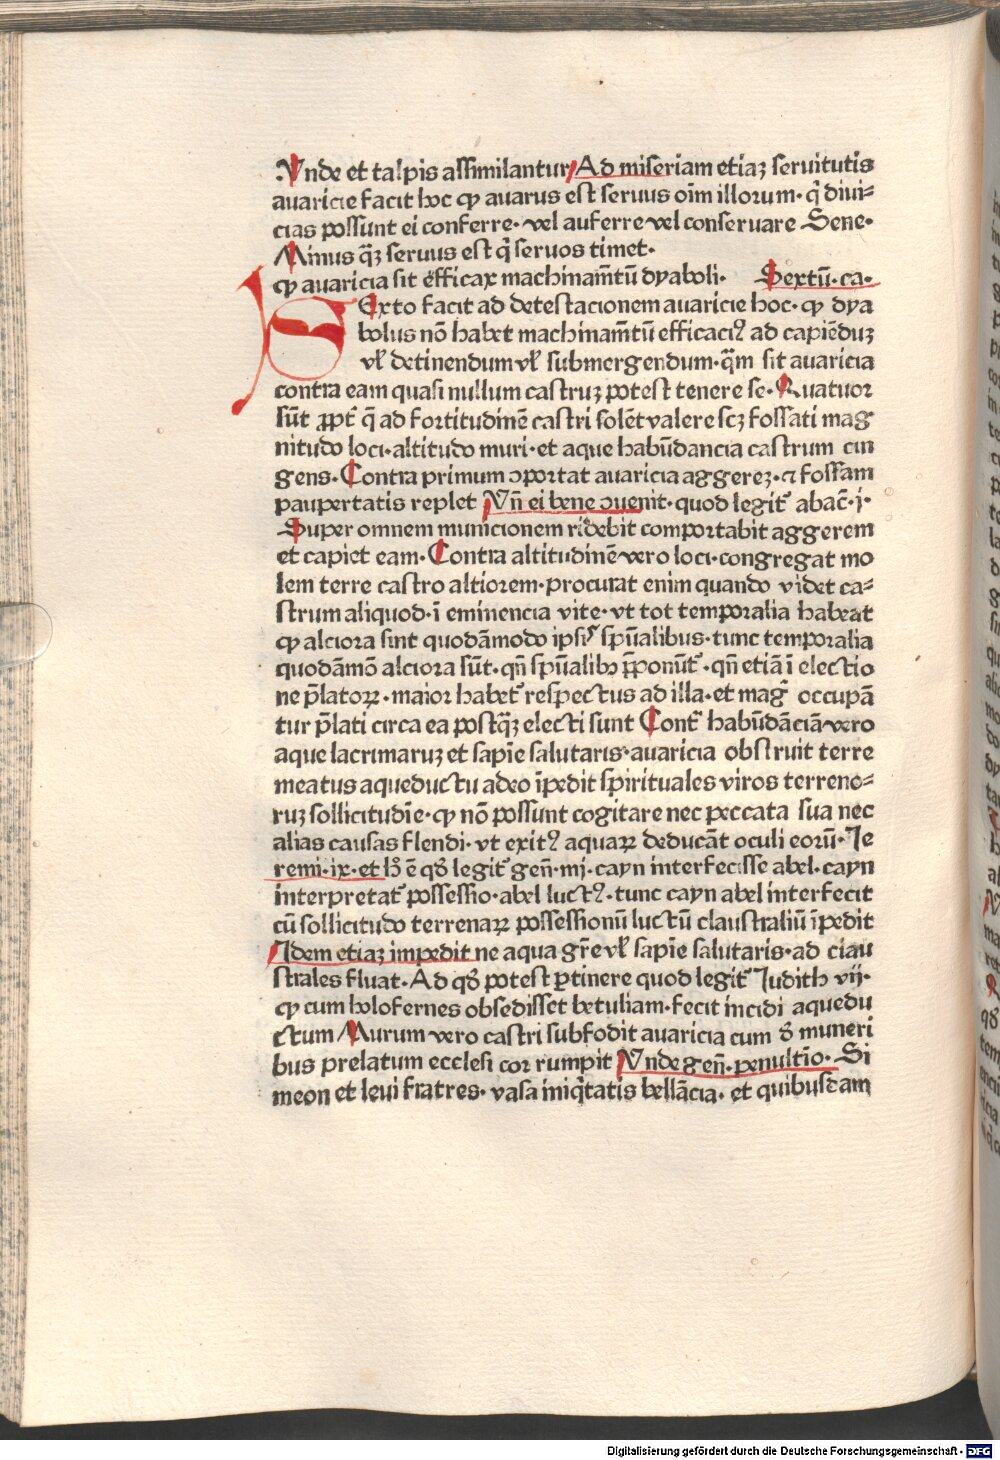 Vnde et talpis assimilantur Ad miseriam etiaꝫ seruitutis
auaricie facit hoc ꝙ auarus est seruus oīm illorum· q̄ diui⸗
cias possunt ei conferre· vel auferre vel conseruare Sene·
Minus q̄ꝫ seruus est q̄ seruos timet·
ꝙ auaricia sit efficax machinam̄tū dyaboli· Sextū· ca·
SExto facit ad detestacionem auaricie hoc· ꝙ dya
bolus nō habet machinam̄tū efficaciꝰ ad capiēduꝫ
vl̄ detinendum vl̄ submergendum· q̄m sit auaricia
contra eam quasi nullum castruꝫ potest tenere se· Quatuor
sūt ꝓpt̄ q̄ ad fortitudinē castri solēt valere scꝫ fossati mag
nitudo loci· altitudo muri· et aque habūdancia castrum cin
gens· Contra primum ɔportat auaricia aggereꝫ· ⁊ fossam
paupertatis replet Vn̄ ei bene ɔuenit· quod legit᷑ abac̄· i·
Super omnem municionem ridebit comportabit aggerem
et capiet eam· Contra altitudinē vero loci· congregat mo
lem terre castro altiorem· procurat enim quando videt ca⸗
strum aliquod· ī eminencia vite· vt tot temporalia habeat
ꝙ alciora sint quodāmodo ipsis spūalibus· tunc temporalia
quodāmō alciora sūt· qn̄ spūalibꝫ p̄ponūt᷑· qn̄ etiā ī electio
ne p̄latoꝝ· maior habet᷑ respectus ad illa· et mag᷑ occupā
tur p̄lati circa ea postq̄ꝫ electi sunt Cont᷑ habūdāciā vero
aque lacrimaruꝫ et sapīe salutaris· auaricia obstruit terre
meatus aqueductu adeo īpedit spirituales viros terreno⸗
ruꝫ sollicitudīe· ꝙ nō possunt cogitare nec peccata sua nec
alias causas flendi· vt exitꝰ aquaꝝ deducāt oculi eorū· Ie
remi· ix· et h̄ ē qð legit᷑ gen̄· iiij· cayn interfecisse abel· cayn
interpretat᷑ possessio· abel luctꝰ· tunc cayn abel interfecit
cū sollicitudo terrenaꝝ possessionū luctū claustraliū īpedit
Idem etiaꝫ impedit ne aqua gr̄e vl̄ sapīe salutaris· ad clau
strales fluat· Ad qð potest ꝑtinere quod legit᷑ Iudith vij·
ꝙ cum holofernes obsedisset betuliam· fecit incidi aquedu
ctum Murum vero castri subfodit auaricia cum ð muneri
bus prelatum ecclesi corrumpit Vnde gen̄· penultīo· Si
meon et leui fratres· vasa iniq̄tatis bellācia· et quibusdam
Digitalisierung gefördert durch die Deutsche Forschungsgemeinschaft - DFG